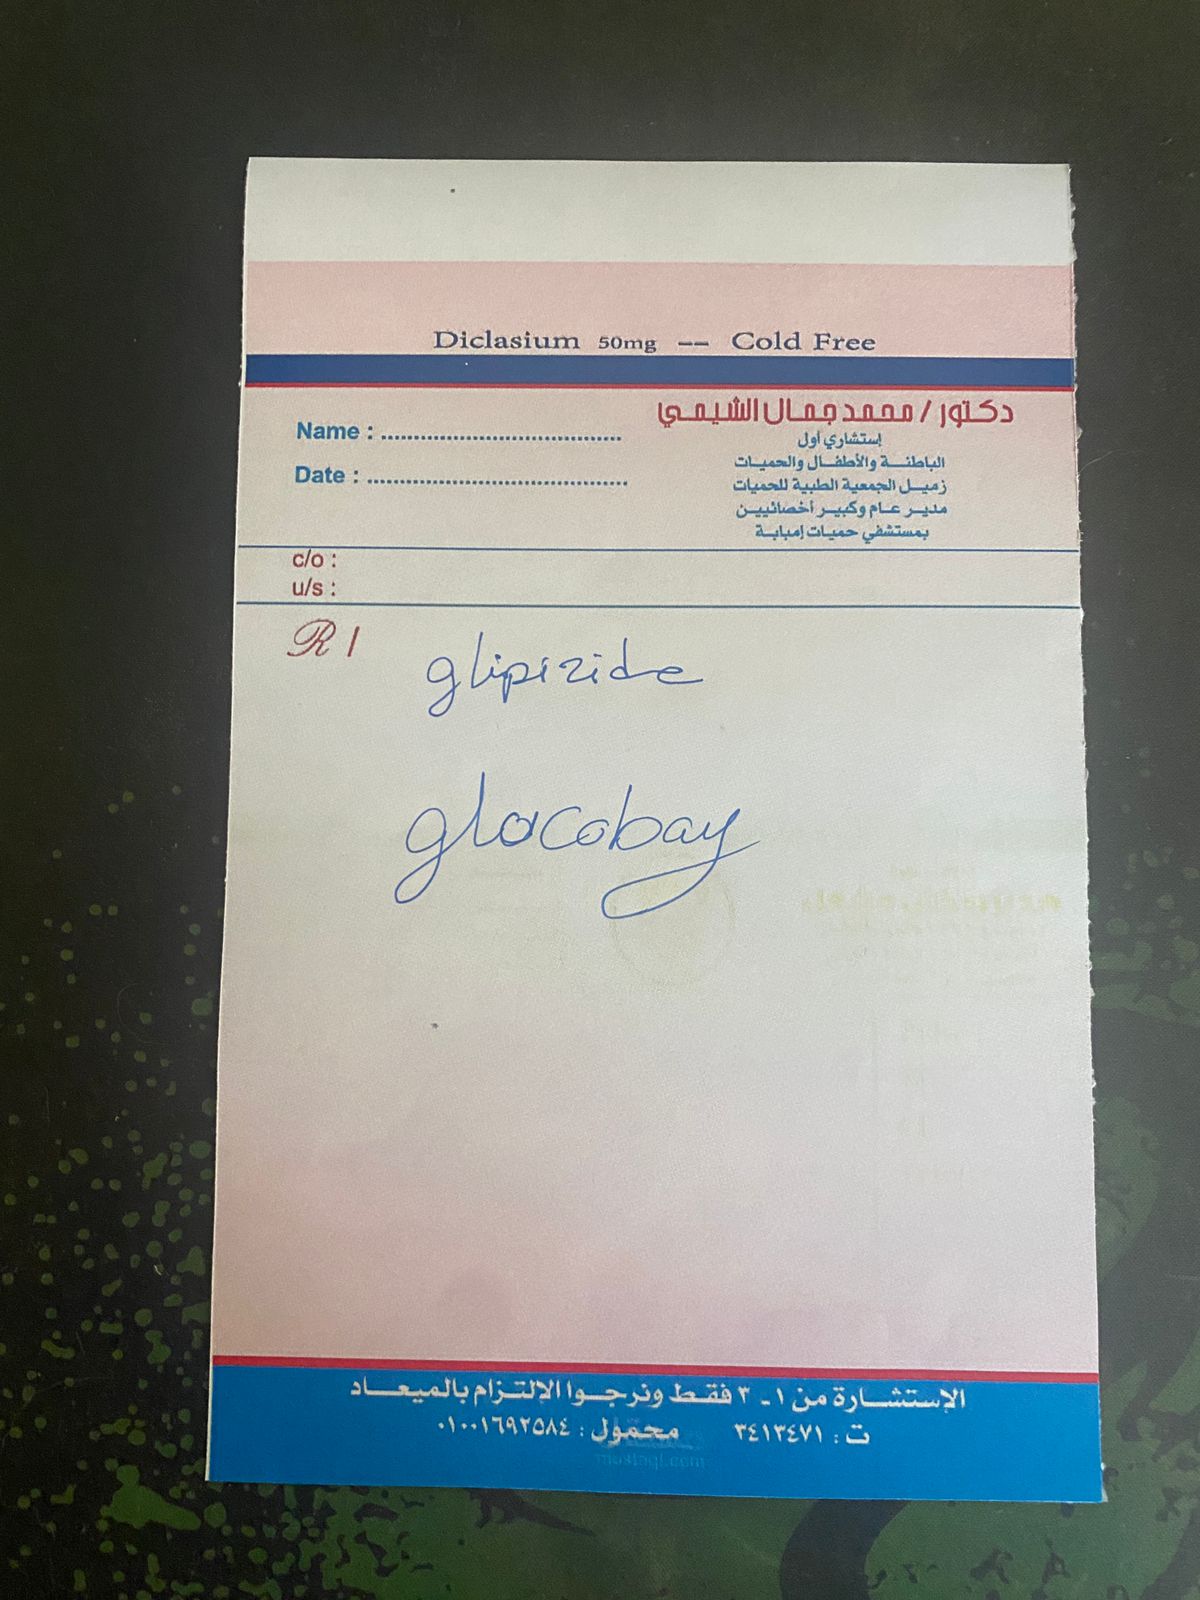 Diclasium 50mg -- Cold Free
دكتور / محمد جمال الشيمي
إستشاري أول
الباطنة والأطفال والحميات
زميل الجمعية الطبية للحميات
مدير عام وكبير أخصائيين
بمستشفي حميات إمبابة
Name : ....................................
Date : .......................................
c/o :
u/s :
R /
glipizide
glocobay
الإستشارة من ١ - ٣ فقط ونرجوا الإلتزام بالميعاد
ت : ٣٤١٣٤٧١ محمول : ٠١٠٠١٦٩٢٥٨٤
mostaql.com